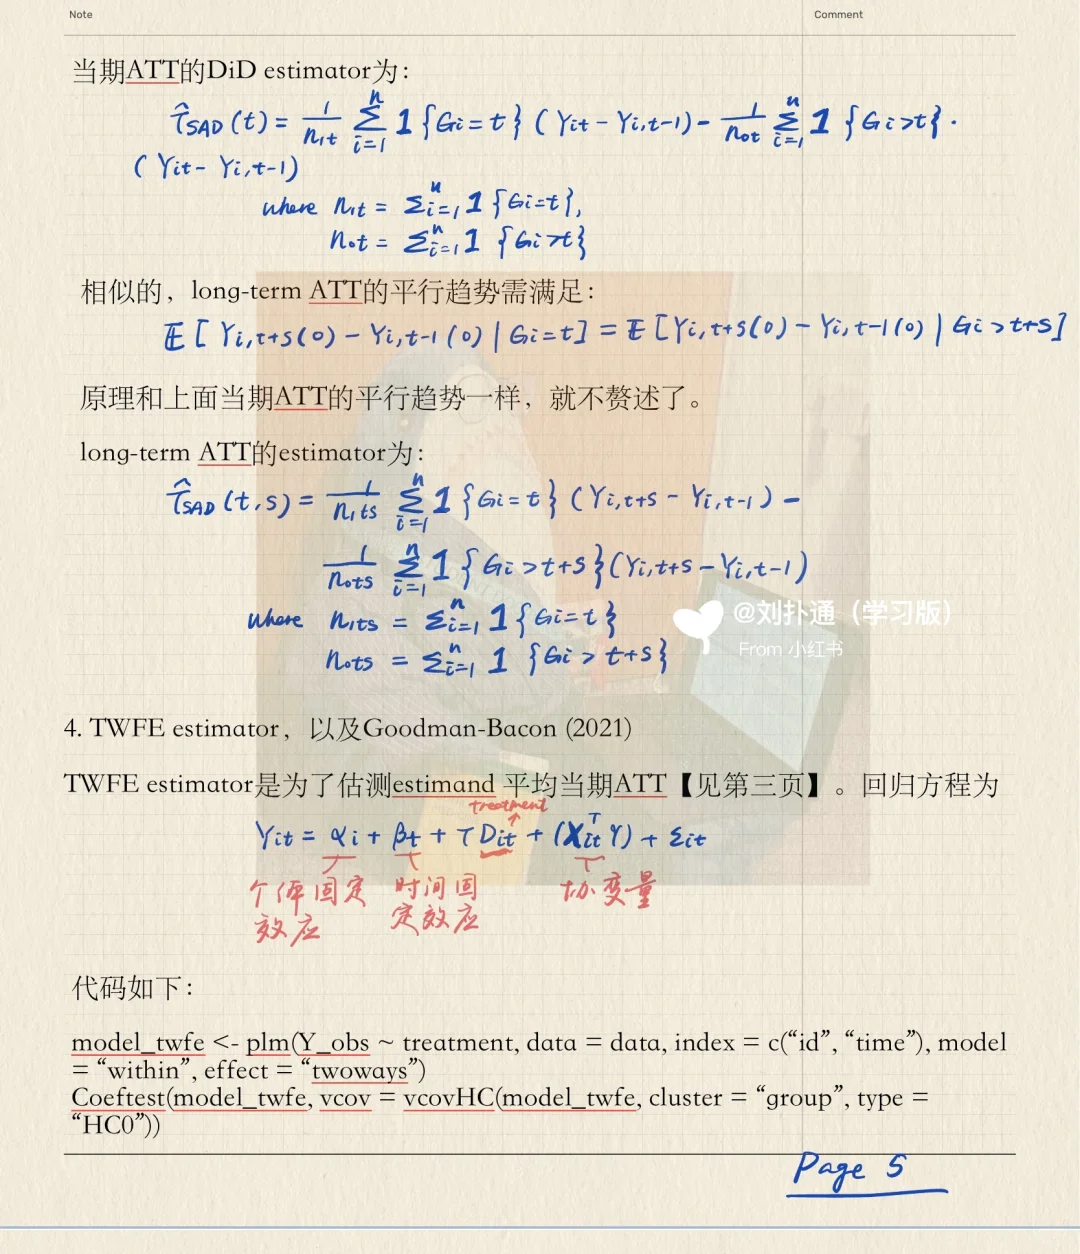 Note Comment
当期ATT的DiD estimator为：
τ̂SAD (t) = 1/n1t Σ(i=1 to n) 1{Gi = t} (Yit − Yi,t−1) − 1/n0t Σ(i=1 to n) 1{Gi > t} ·
(Yit − Yi,t−1)
where n1t = Σ_{i=1}^n 1{Gi=t},
n0t = Σ_{i=1}^n 1{Gi>t}
相似的，long-term ATT的平行趋势需满足：
𝔼[Yi,t+s(0) − Yi,t−1(0) | Gi=t] = 𝔼[Yi,t+s(0) − Yi,t−1(0) | Gi > t+s]
原理和上面当期ATT的平行趋势一样，就不赘述了。
long-term ATT的estimator为：
τ̂SAD (t,s) = 1/n1ts Σ(i=1 to n) 1{Gi = t} (Yi,t+s − Yi,t−1) −
1/n0ts Σ(i=1 to n) 1{Gi > t+s} (Yi,t+s − Yi,t−1)
where n1ts = Σ_{i=1}^n 1{Gi=t}
n0ts = Σ_{i=1}^n 1{Gi > t+s}
@刘扑通（学习版）
From 小红书
4. TWFE estimator，以及Goodman-Bacon (2021)
TWFE estimator是为了估测estimand 平均当期ATT【见第三页】。回归方程为
treatment
Yit = αi + βt + τ Dit + (Xit^T γ) + εit
个体固定 时间固 协变量
效应 定效应
代码如下：
model_twfe <- plm(Y_obs ~ treatment, data = data, index = c(“id”, “time”), model
= “within”, effect = “twoways”)
Coeftest(model_twfe, vcov = vcovHC(model_twfe, cluster = “group”, type =
“HC0”))
Page 5